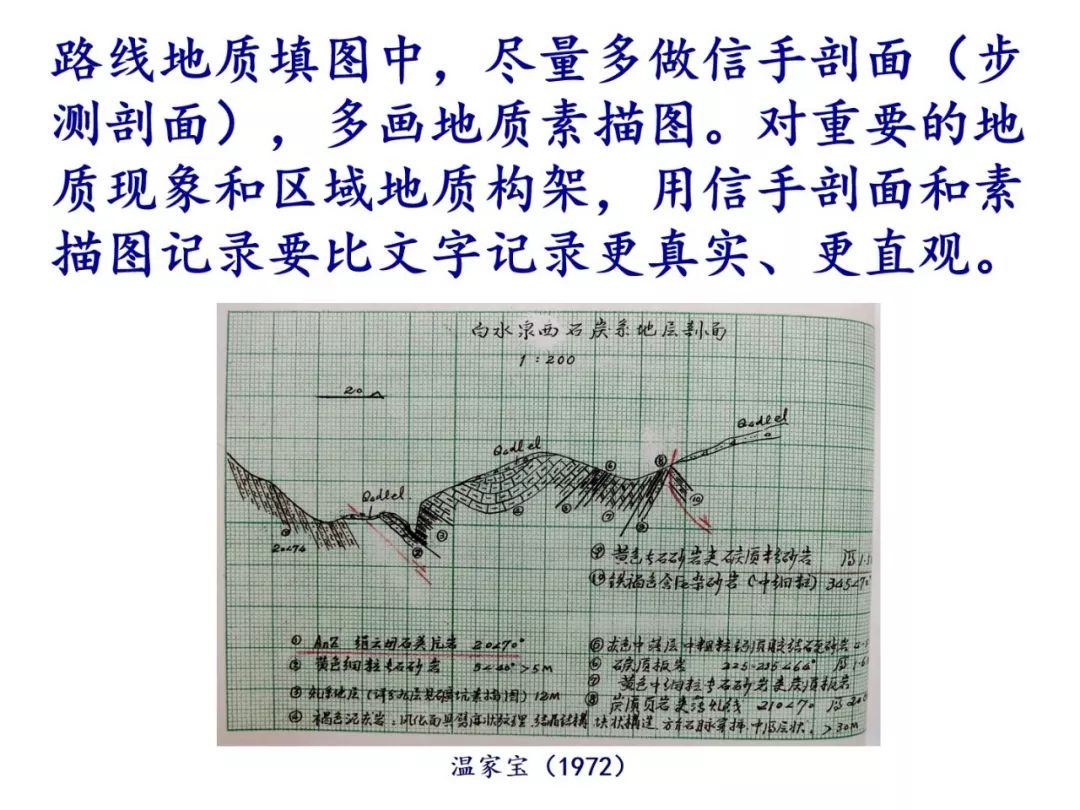 路线地质填图中，尽量多做信手剖面（步
测剖面），多画地质素描图。对重要的地
质现象和区域地质构架，用信手剖面和素
描图记录要比文字记录更真实、更直观。
白水泉西石炭系地层剖面
1：200
20
Qadlel
Qadlel
Qadlel.
⑥
⑧
①
②
③
④
⑤
⑦
⑨
⑩
20∠74
⑨ 黄色长石砂岩夹碳质粉砂岩
⑩ 铁褐色含Fe杂砂岩（中细粒）345∠70°
① AnZ 绢云母石英片岩 20∠70°
② 黄色细粒长石砂岩 5∠40° >5M
③ 12M
④ 褐色泥灰岩：风化面具 结晶结构 块状构造 方解石脉穿插 中厚层状. >30M
⑤ 灰色中薄层中粗粒
⑥ 碳质板岩 225-235∠64°
⑦ 黄色中细粒长石砂岩夹炭质板岩
⑧ 炭质页岩夹薄 210∠70
温家宝（1972）